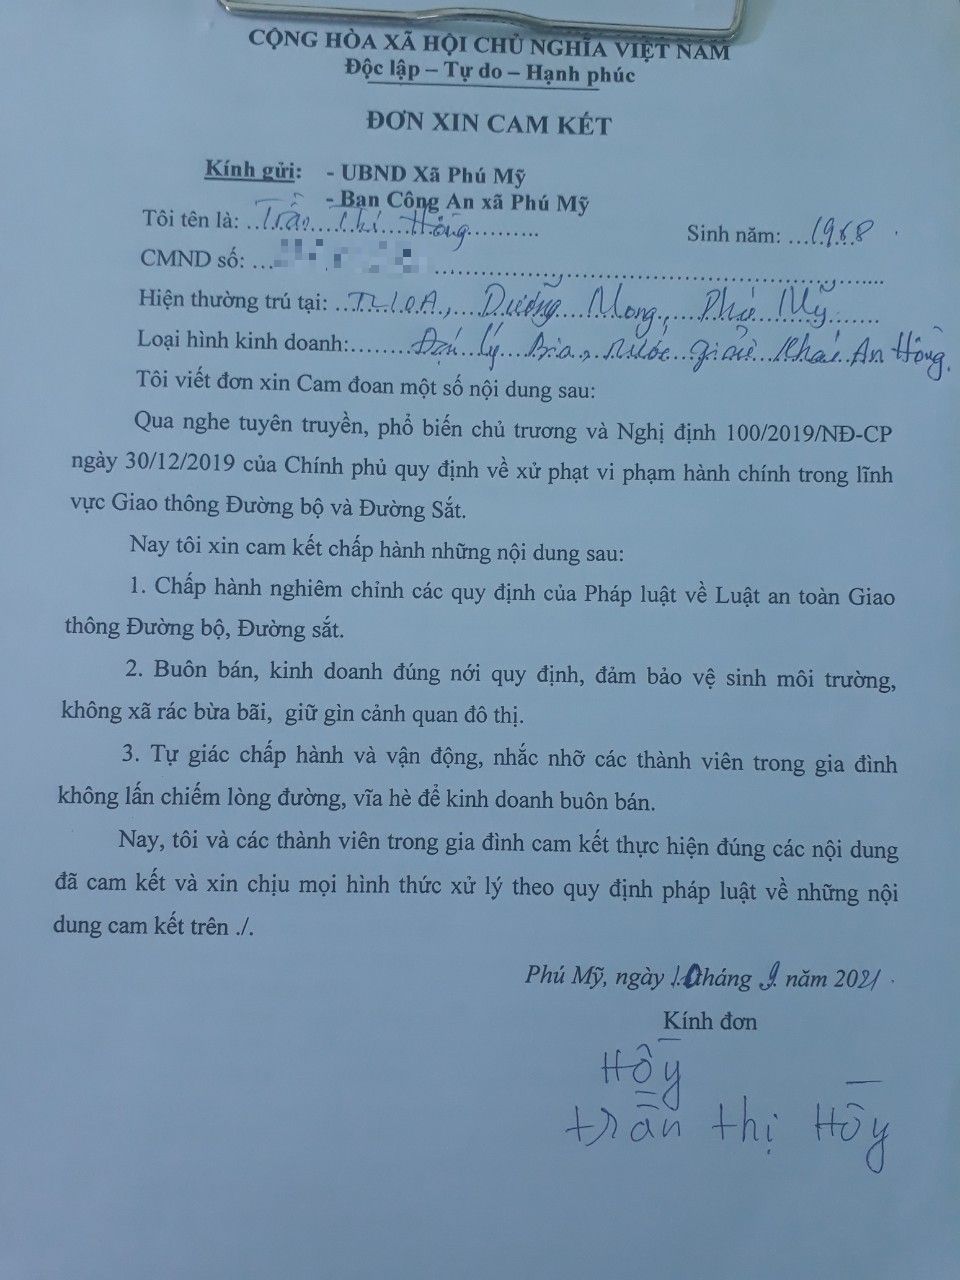 CỘNG HÒA XÃ HỘI CHỦ NGHĨA VIỆT NAM
Độc lập – Tự do – Hạnh phúc
ĐƠN XIN CAM KẾT
Kính gửi: - UBND Xã Phú Mỹ
- Ban Công An xã Phú Mỹ
Tôi tên là: Trần Thị Hồng Sinh năm: 1968
CMND số:
Hiện thường trú tại: Dưỡng Mong, Phú Mỹ
Loại hình kinh doanh: Đại lý Bia, nước giải khát An Hồng.
Tôi viết đơn xin Cam đoan một số nội dung sau:
Qua nghe tuyên truyền, phổ biến chủ trương và Nghị định 100/2019/NĐ-CP
ngày 30/12/2019 của Chính phủ quy định về xử phạt vi phạm hành chính trong lĩnh
vực Giao thông Đường bộ và Đường Sắt.
Nay tôi xin cam kết chấp hành những nội dung sau:
1. Chấp hành nghiêm chỉnh các quy định của Pháp luật về Luật an toàn Giao
thông Đường bộ, Đường sắt.
2. Buôn bán, kinh doanh đúng nới quy định, đảm bảo vệ sinh môi trường,
không xã rác bừa bãi, giữ gìn cảnh quan đô thị.
3. Tự giác chấp hành và vận động, nhắc nhỡ các thành viên trong gia đình
không lấn chiếm lòng đường, vĩa hè để kinh doanh buôn bán.
Nay, tôi và các thành viên trong gia đình cam kết thực hiện đúng các nội dung
đã cam kết và xin chịu mọi hình thức xử lý theo quy định pháp luật về những nội
dung cam kết trên ./.
Phú Mỹ, ngày 10 tháng 9 năm 2021
Kính đơn
Hồy
trần thị Hồy